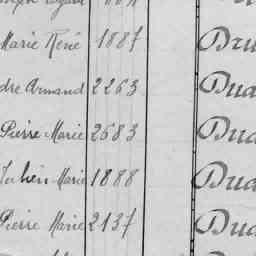 Marie René 1887 Dru
dre Armand 2263 Dua
Pierre Marie 2683 Dua
Julien Marie 1888 Dua
Pierre Marie 2137 Dua